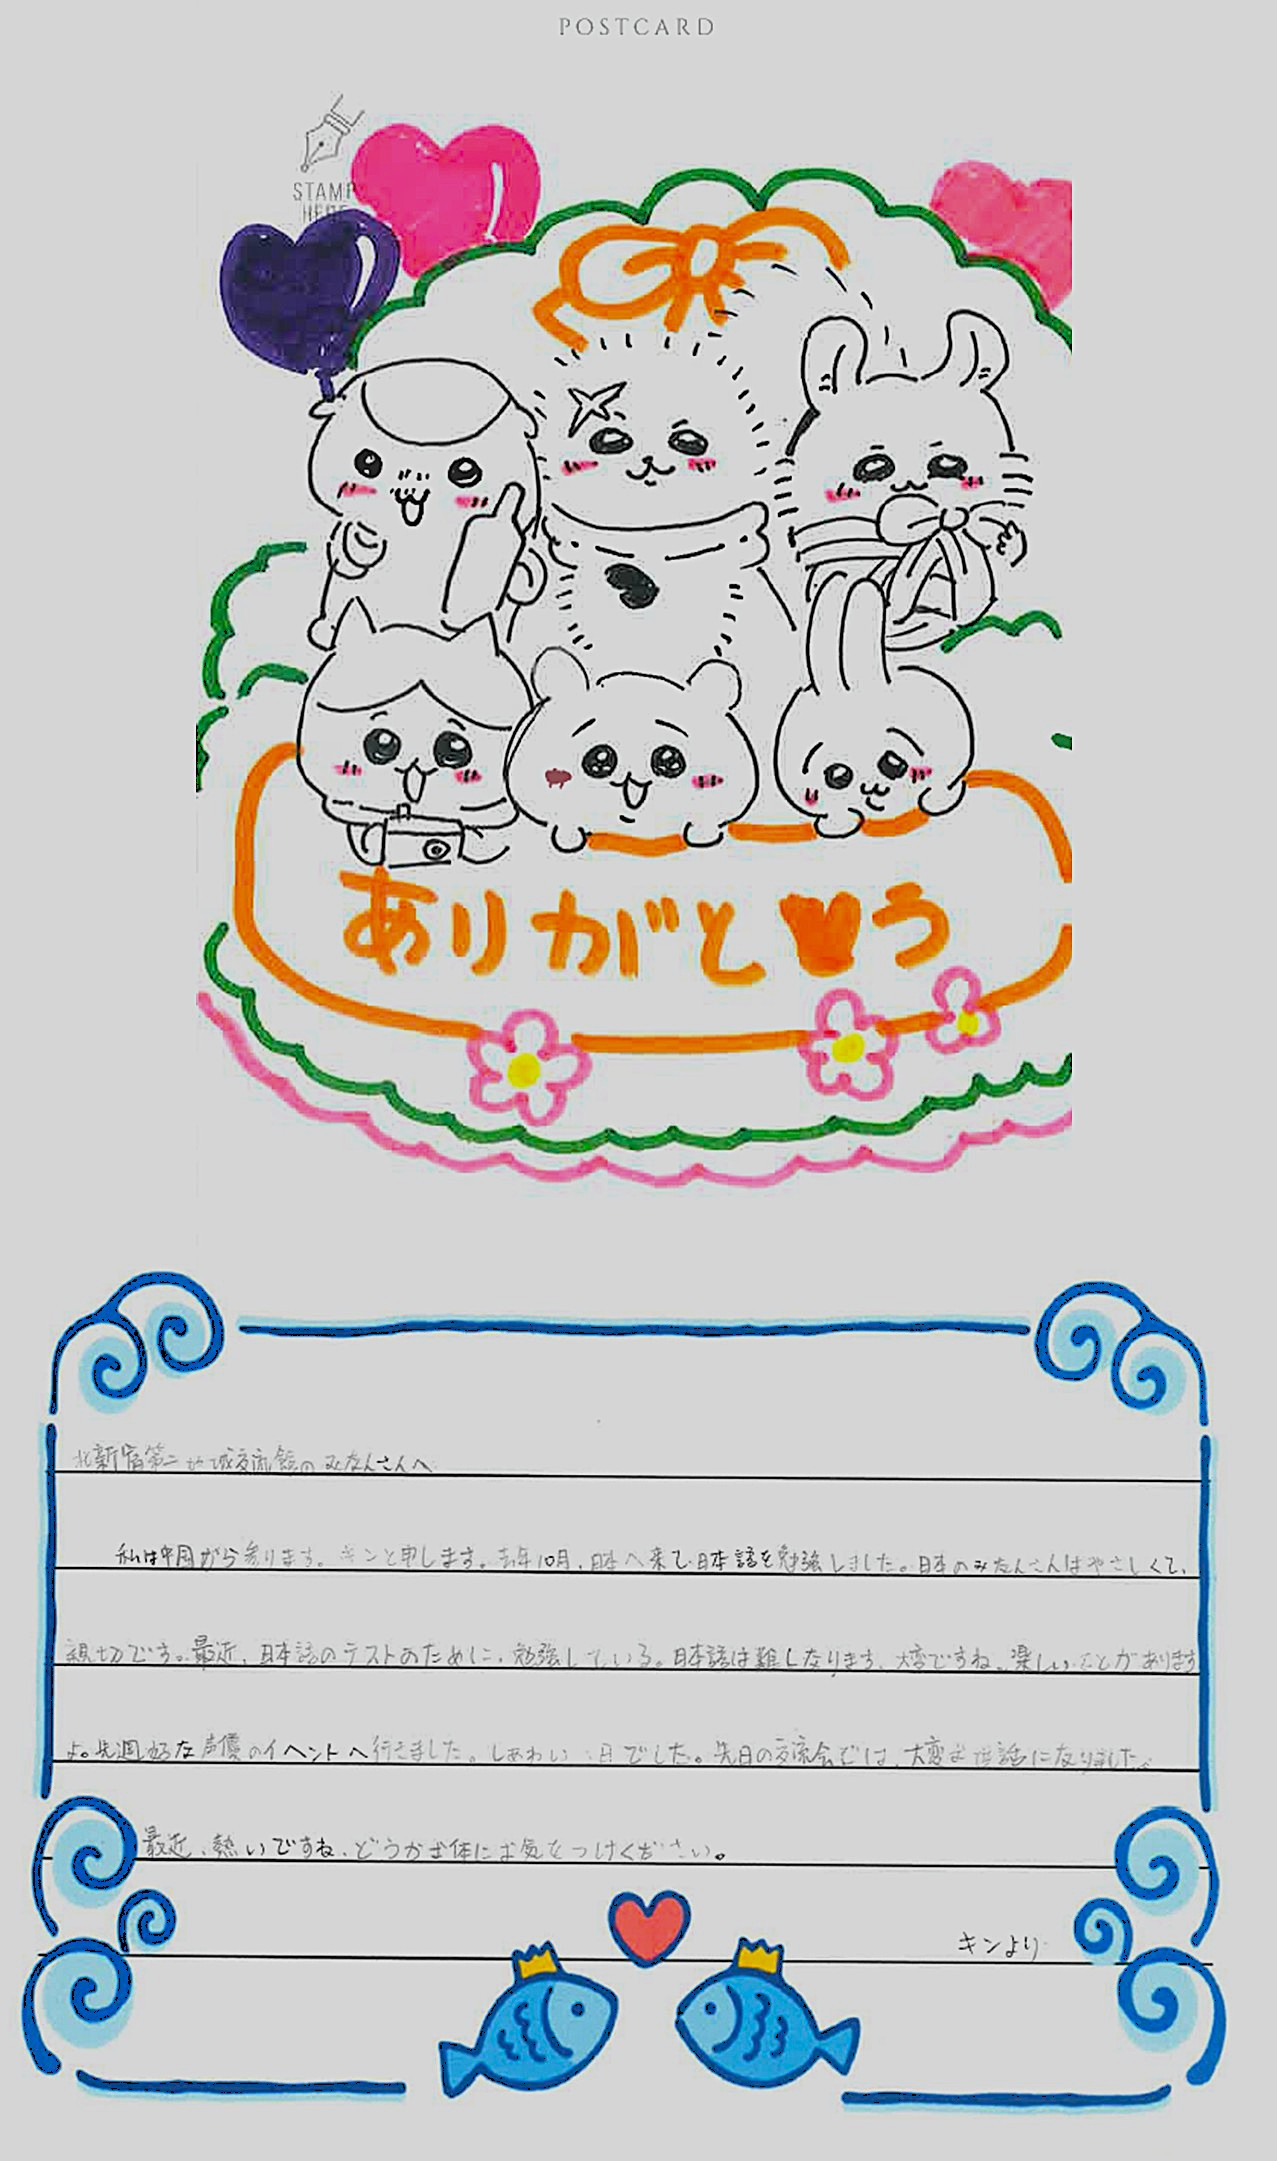 POSTCARD
STAMP
HERE
ありがとう
北新宿第二地域交流館のみなんさんへ
私は中国から参ります。キンと申します。去年10月、日本へ来て日本語を勉強しました。日本のみなんさんはやさしくて、
親切です。最近、日本語のテストのために、勉強している。日本語は難しなります、大変ですね。楽しいことがあります
よ。先週好な声優のイヘントへ行きました。しあわい日でした。先日の交流会では、大変お世話になりました。
最近、熱いですね、どうかお体にお気をつけください。
キンより